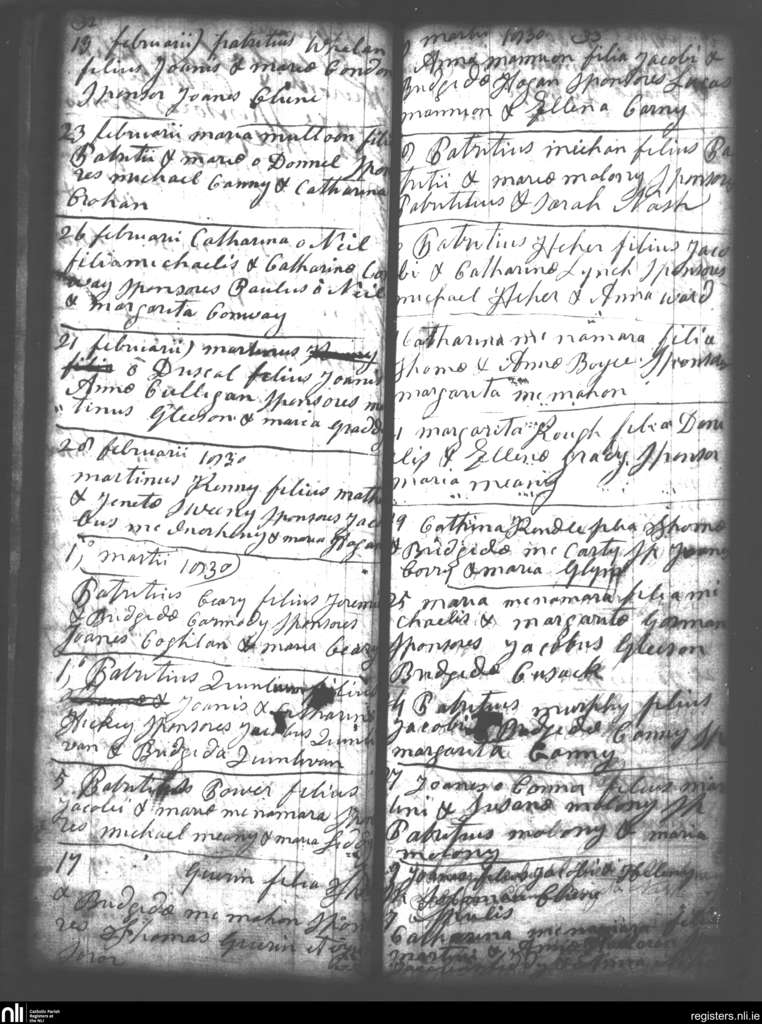 32
19 februarii) patritius Whelan
filius Joanis & mariæ Condo
Sponsor Joanes Clune
23 februarii maria muttoon fili
Patritii & mariæ o Donnel Spon
res michael Canny & Catharina
Crohan
26 februarii Catharina o Neil
filia michaelis & Catharinæ Co
way Sponsores Paulus o Neil
& margarita Conway
21 februarii) martinus
o Driscal filius Joanis
Annæ Culligan Sponsores ma
tinus Gleeson & maria Grady
28 februarii 1830
martinus Kenny filius math
& Sweeny Sponsores Jaco
bus mc & maria Hogan
1,° martii 1830)
Patritius Ceary filius Jeremi
& Bridgidæ Carmody Sponsores
Joanes Coghlan & maria Ceary
1,° Patritius Quinlivan filius
Joanis & Catharinæ
Hickey Sponsores Jacobus Quinli
van & Bridgida Quinlivan
5 Patritius Power filius
Jacobi & mariæ mcnamara Spon
res michael meany & maria
17 Guerin filia
& Bridgidæ mc mahon Spon
res Thomas Guerin
Soror
martii 1830 33
Anna mannion filia Jacobi &
Bridgidæ Hogan Sponsores Lucas
mannion & Ellena Carny
8 Patritius mehan filius Pa
tritii & mariæ molony Sponsores
Patritius & Sarah Nash
Patritius Heher filius Jaco
bi & Catharinæ Lynch Sponsores
michael Heher & Anna ward
Catharina mc namara filia
Thomæ & Annæ Boyce Sponsor
margarita mc mahon
margarita Kough filia Dani
elis & Ellenæ Grady Sponsor
maria meany
19 Cathrina filia Thomæ
& Bridgidæ mc Carty Sp Joanes
Corry & maria Glynn
25 maria mcnamara filia mi
chaelis & margaritæ Gorman
Sponsores Jacobus Gleeson
Bridgida Cusack
4 Patritius murphy filius
Jacobi & Bridgidæ Canny Sp
margarita Canny
7 Joanes o Connor filius mar
tini & Susanæ molony Sp
Patritius molony & maria
molony
9 Joannes filius Jacobi & Hellenæ
7 Aprilis
Catharina mcnamara filia
martini & Annæ
nli
Catholic Parish
Registers at
the NLI
registers.nli.ie